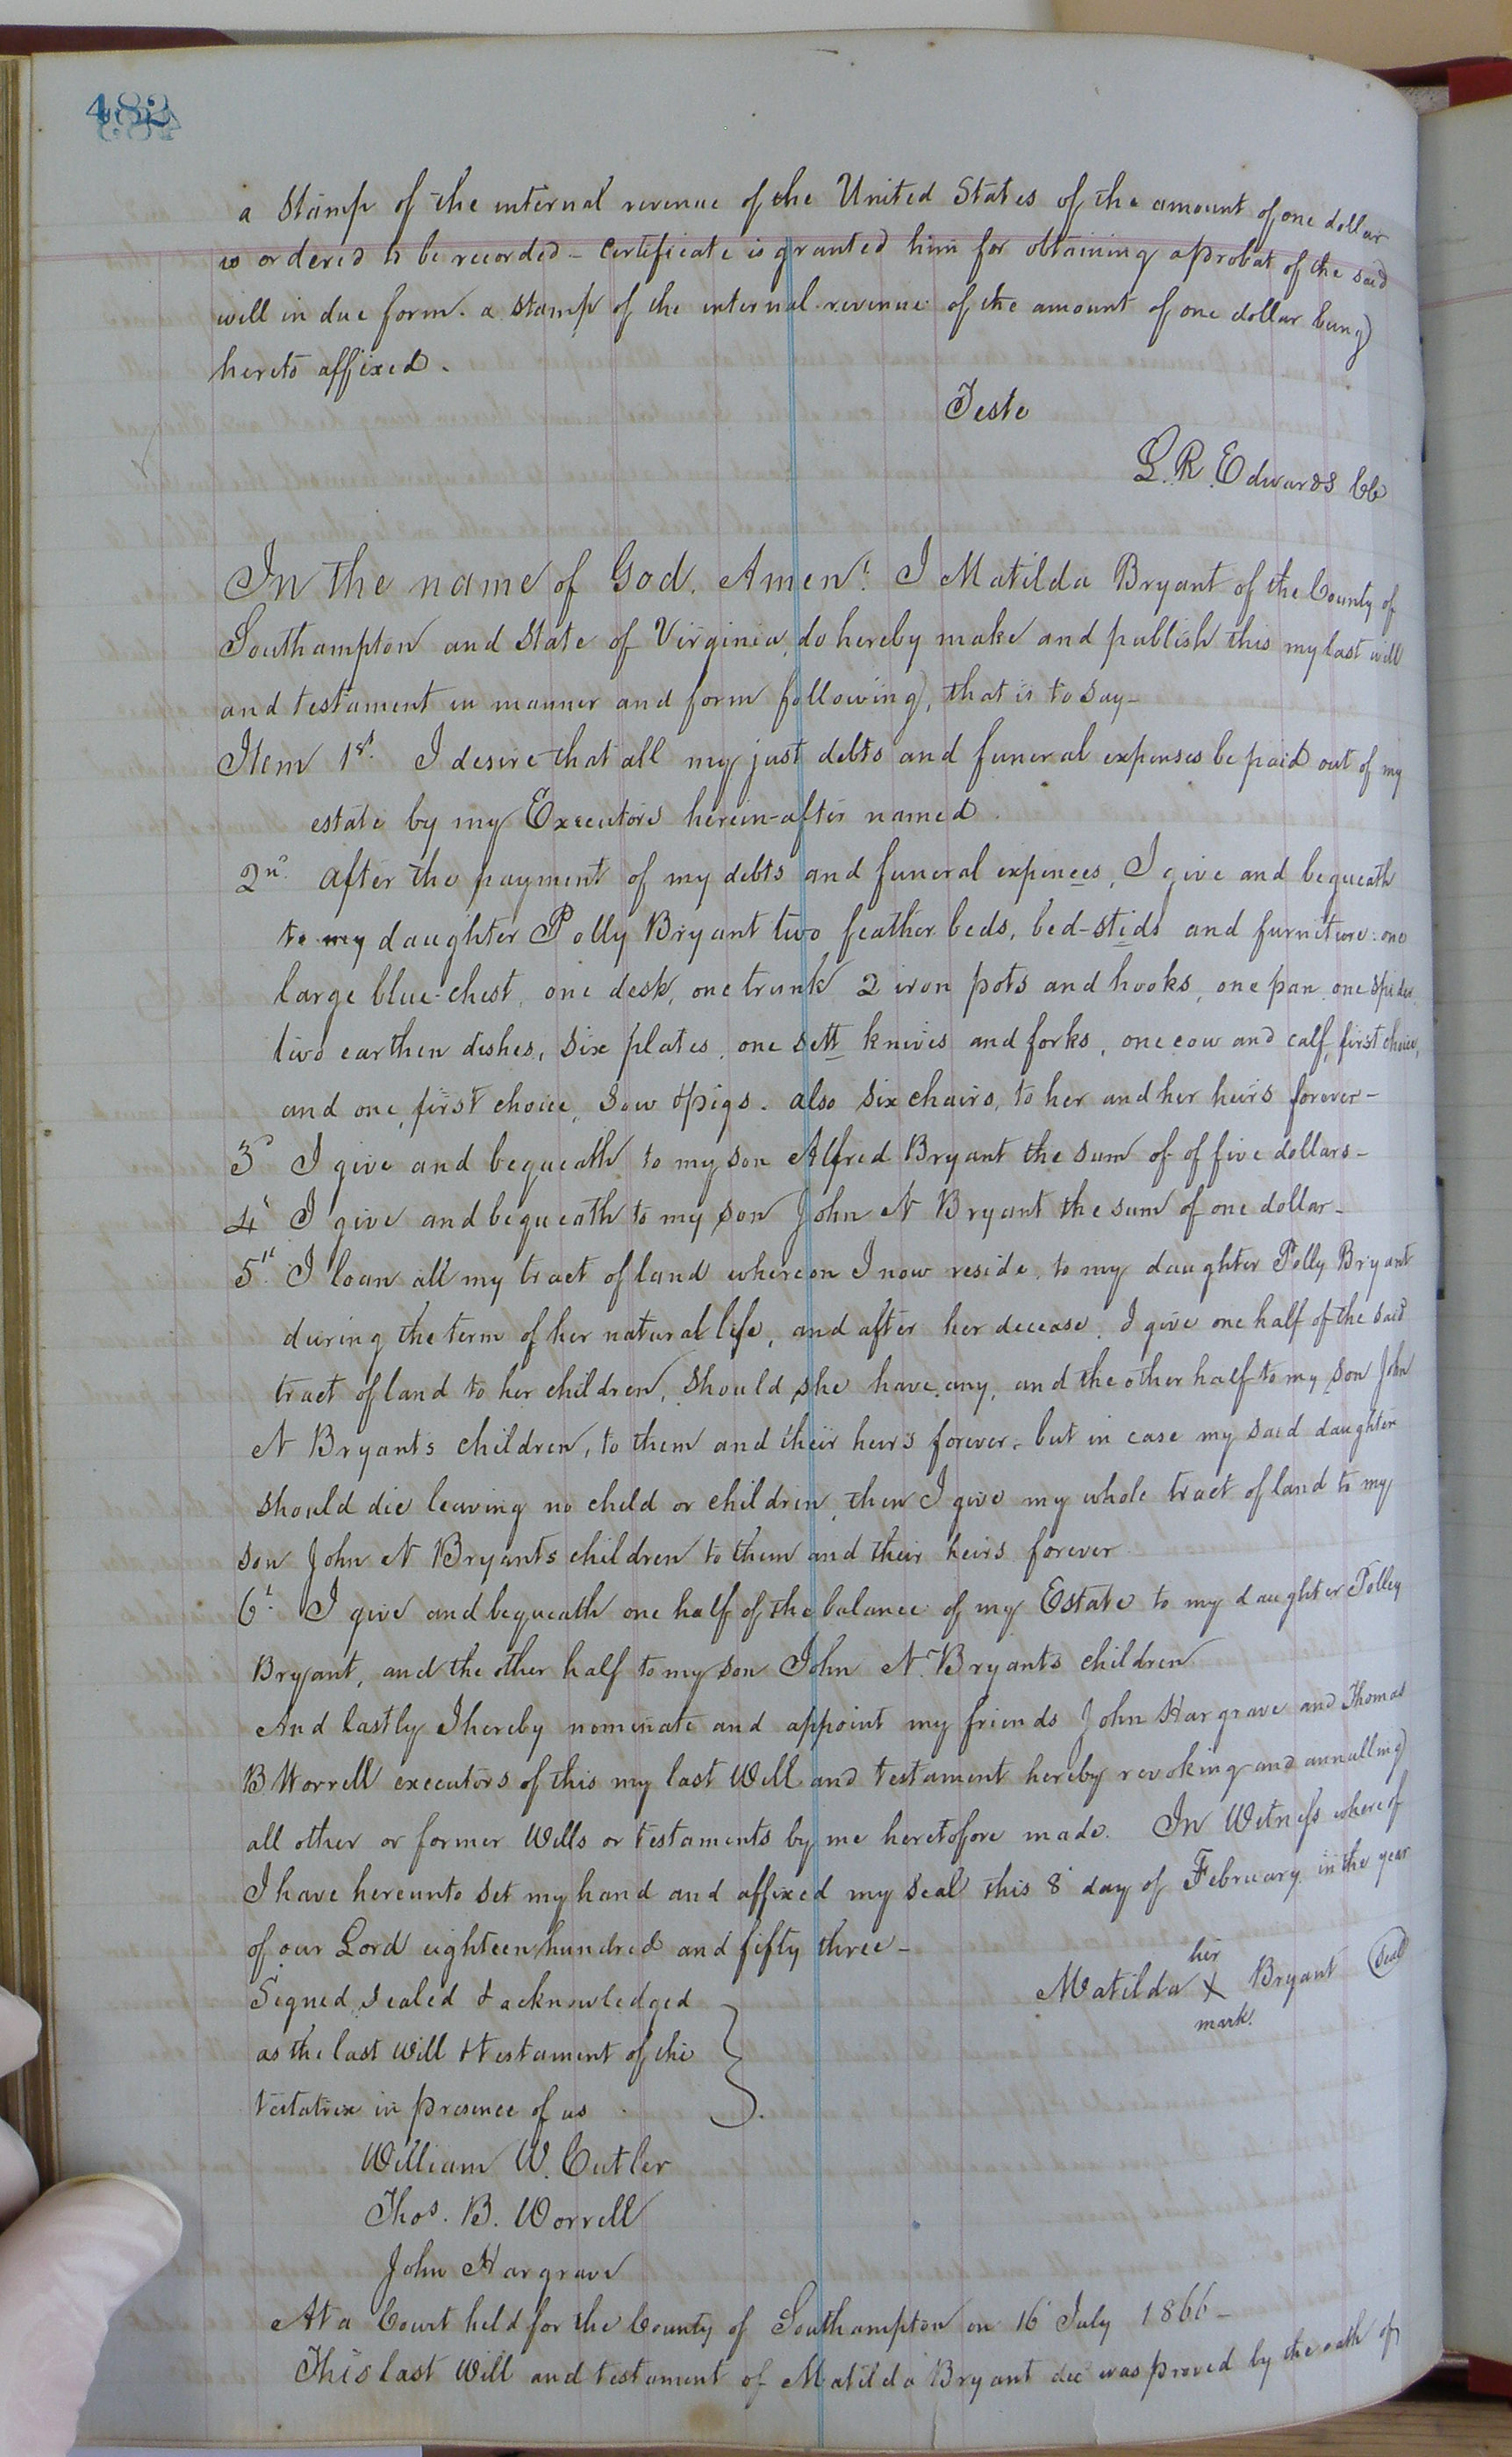 482
a Stamp of the internal revenue of the United States of the amount of one dollar
is ordered to be recorded – Certificate is granted him for obtaining a probat of the said
will in due form. a stamp of the internal revenue of the amount of one dollar being
hereto affixed.
Teste
L. R. Edwards Clk
In the name of God. Amen! I Matilda Bryant of the County of
Southampton and State of Virginia, do hereby make and publish this my last will
and testament in manner and form following, that is to say–
Item 1st. I desire that all my just debts and funeral expenses be paid out of my
estate by my Executors herein-after named.
2nd. After the payment of my debts and funeral expences, I give and bequeath
to my daughter Polly Bryant two feather beds, bed-stids and furniture: one
large blue-chest, one desk, one trunk 2 iron pots and hooks, one pan, one spider,
two earthen dishes, six plates, one sett knives and forks, one cow and calf, first choice,
and one, first choice, sow & pigs. also six chairs, to her and her heirs forever–
3d I give and bequeath to my son Alfred Bryant the sum of of five dollars–
4t I give and bequeath to my son John N Bryant the sum of one dollar–
5th. I loan all my tract of land whereon I now reside, to my daughter Polly Bryant
during the term of her natural life, and after her decease, I give one half of the said
tract of land to her children, should she have any, and the other half to my son John
N Bryants children, to them and their heirs forever, but in case my said daughter
should die leaving no child or children, then I give my whole tract of land to my
son John N Bryants children to them and their heirs forever
6t. I give and bequeath one half of the balance of my Estate to my daughter Polley
Bryant, and the other half to my son John N. Bryants children
And lastly I hereby nominate and appoint my friends John Hargrave and Thomas
B. Worrell executors of this my last Will and testament hereby revoking and annulling
all other or former Wills or testaments by me heretofore made. In Witness whereof
I have hereunto set my hand and affixed my seal this 8t day of February in the year
of our Lord eighteen hundred and fifty three–
her
Matilda X Bryant (Seal)
mark.
Signed, sealed & acknowledged
as the last will & testament of the
testatrix in presence of us
William W. Cutler
Thos. B. Worrell
John Hargrave
At a Court held for the County of Southampton on 16t July 1866–
This last Will and testament of Matilda Bryant decd was proved by the oath of